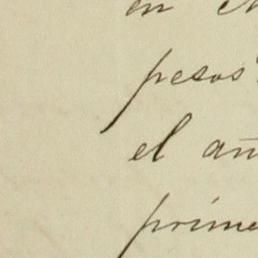 en
pesos
el añ
prime